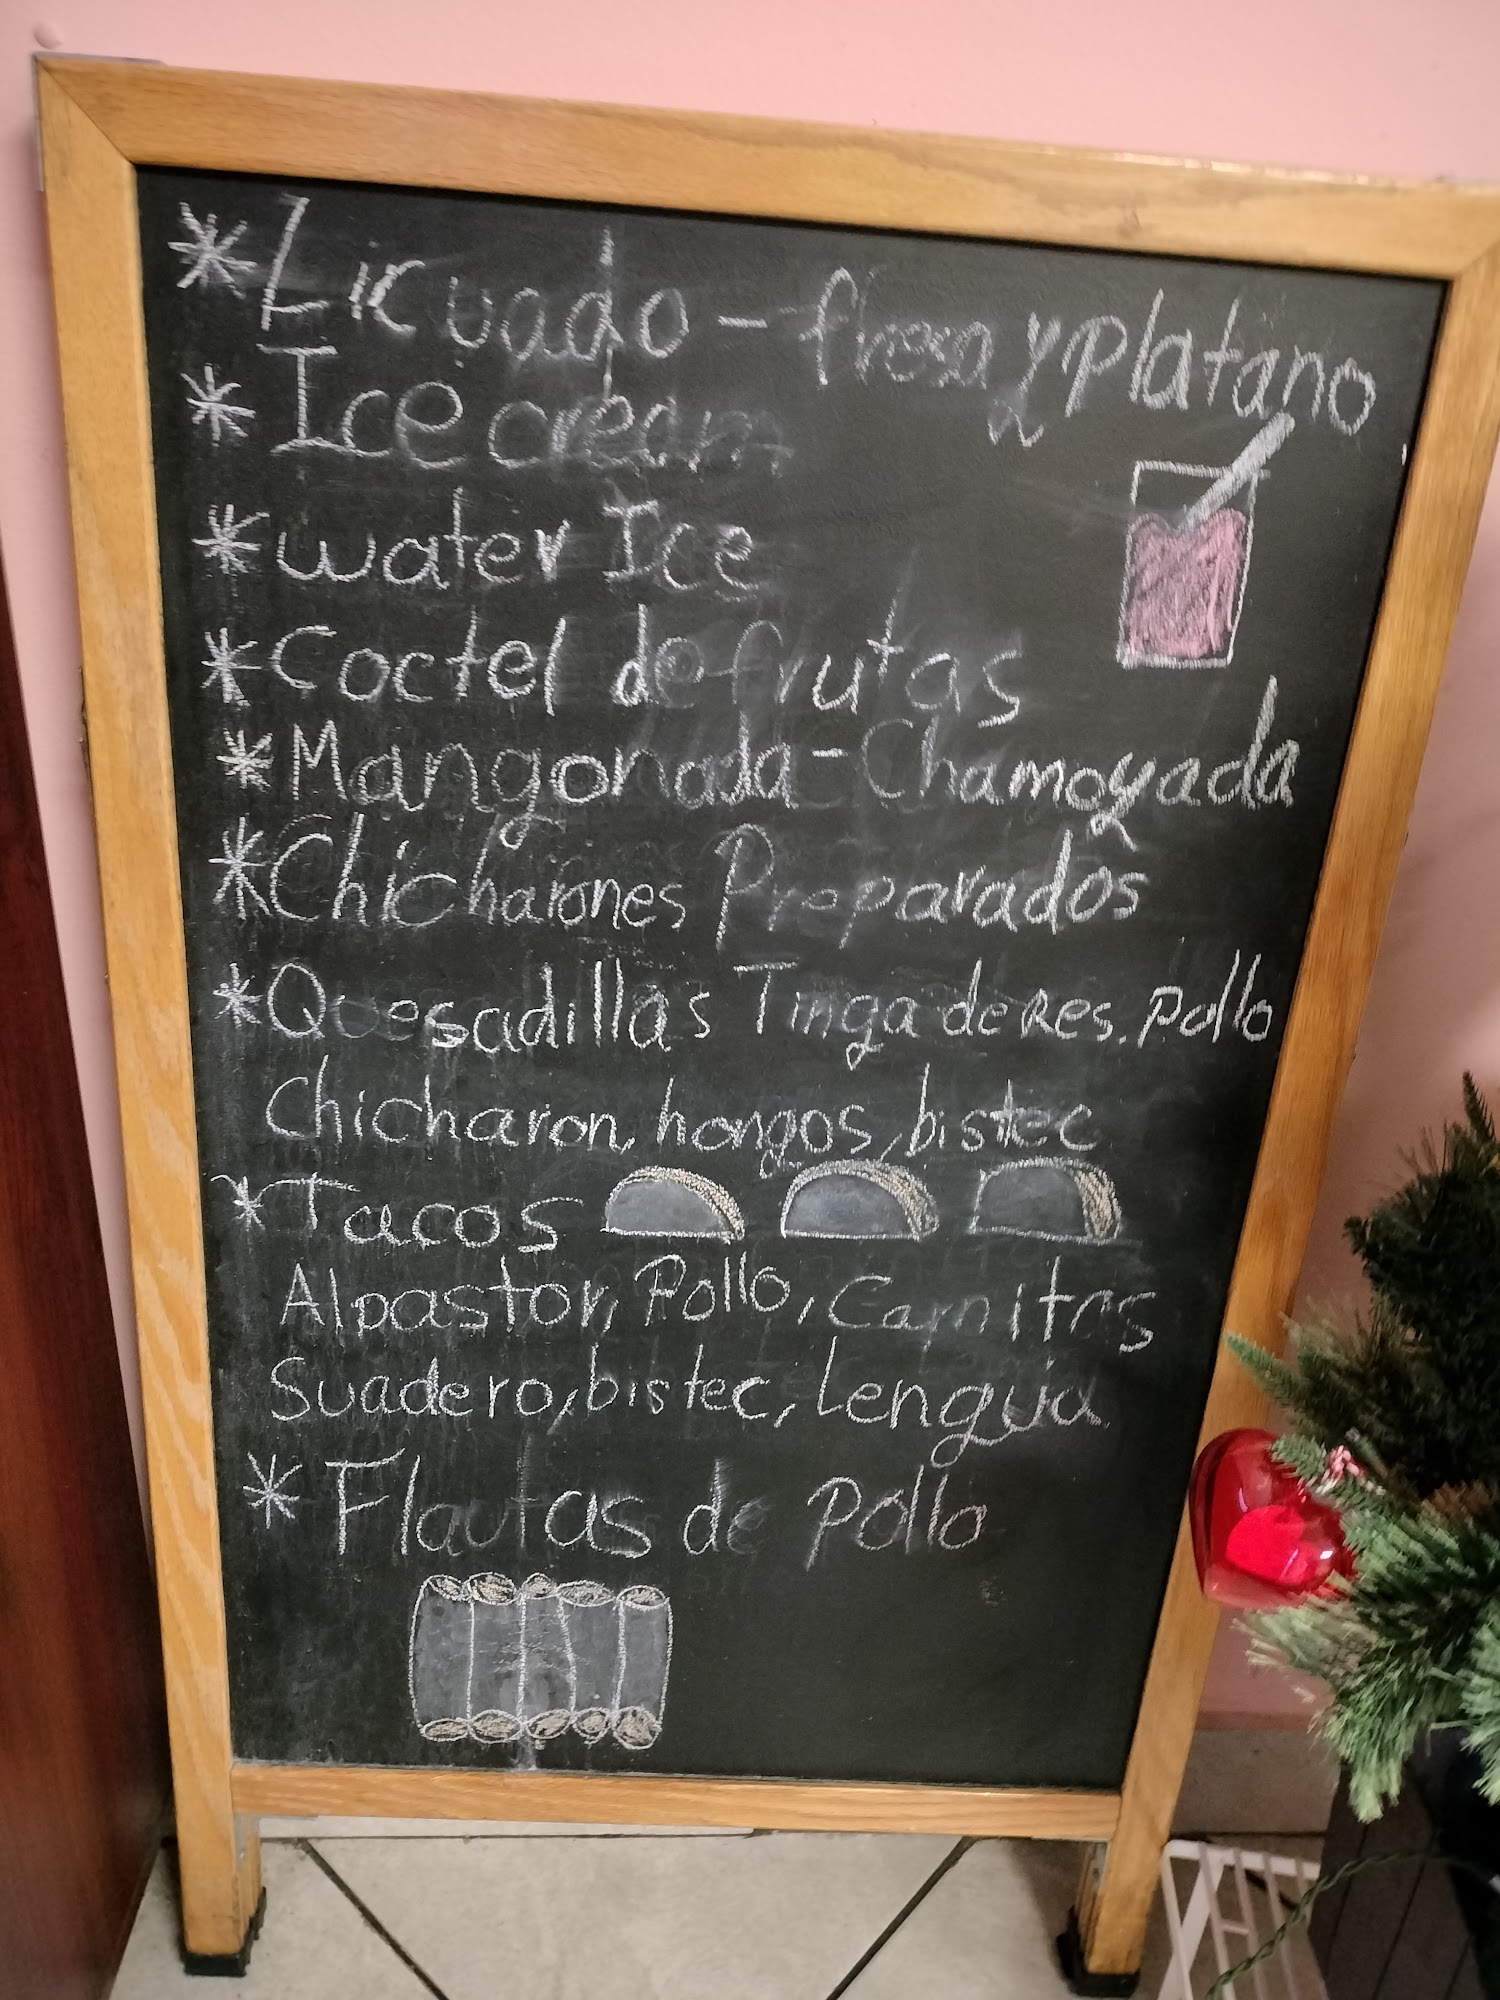 *Licuado - fresa y platano
*Ice cream
*water Ice
*Coctel de frutas
*Mangonada - Chamoyada
*Chicharones Preparados
*Quesadillas Tinga de Res. Pollo
Chicharion, hongos, bistec
*Tacos
Alpastor, Pollo, Carnitas
Suadero, bistec, lengua
* Flautas de pollo